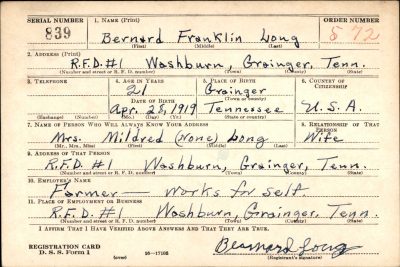 SERIAL NUMBER 1. NAME (Print) ORDER NUMBER
839 Bernard Franklin Long 872
(First) (Middle) (Last)
2. ADDRESS (Print)
R.F.D. #1 Washburn, Grainger, Tenn.
(Number and street or R. F. D. number) (Town) (County) (State)
3. TELEPHONE 4. AGE IN YEARS 5. PLACE OF BIRTH 6. COUNTRY OF CITIZENSHIP
21 Grainger
(Town or county)
DATE OF BIRTH
Apr. 28, 1919 Tennessee U.S.A.
(Exchange) (Number) (Mo.) (Day) (Yr.) (State or country)
7. NAME OF PERSON WHO WILL ALWAYS KNOW YOUR ADDRESS 8. RELATIONSHIP OF THAT PERSON
Mrs. Mildred (None) Long Wife
(Mr., Mrs., Miss) (First) (Middle) (Last)
9. ADDRESS OF THAT PERSON
R.F.D. #1 Washburn, Grainger, Tenn.
(Number and street or R. F. D. number) (Town) (County) (State)
10. EMPLOYER'S NAME
Farmer — Works for Self
11. PLACE OF EMPLOYMENT OR BUSINESS
R.F.D. #1 Washburn, Grainger, Tenn.
(Number and street or R. F. D. number) (Town) (County) (State)
I AFFIRM THAT I HAVE VERIFIED ABOVE ANSWERS AND THAT THEY ARE TRUE.
REGISTRATION CARD
D. S. S. Form 1 (over) 16—17105 Bernard Long
(Registrant's signature)